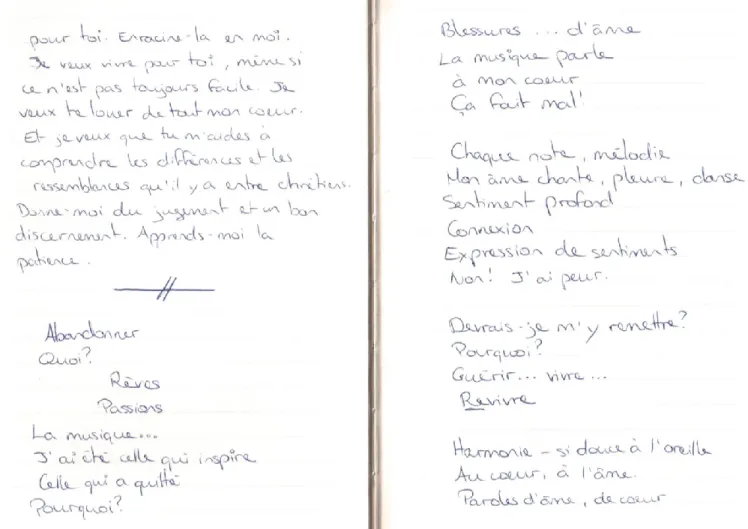 pour toi. Enracine-la en moi.
Je veux vivre pour toi, même si
ce n'est pas toujours facile. Je
veux te louer de tout mon coeur.
Et je veux que tu m'aides à
comprendre les différences et les
ressemblances qu'il y a entre chrétiens.
Donne-moi du jugement et un bon
discernement. Apprends-moi la
patience.
Abandonner
Quoi?
Rêves
Passions
La musique...
J'ai été celle qui inspire
Celle qui a quitté
Pourquoi?
Blessures ... d'âme
La musique parle
à mon coeur
Ça fait mal!
Chaque note, mélodie
Mon âme chante, pleure, danse
Sentiment profond
Connexion
Expression de sentiments
Non! J'ai peur.
Devrais-je m'y remettre?
Pourquoi?
Guérir... vivre...
Revivre
Harmonie - si douce à l'oreille
Au coeur, à l'âme.
Paroles d'âme, de coeur